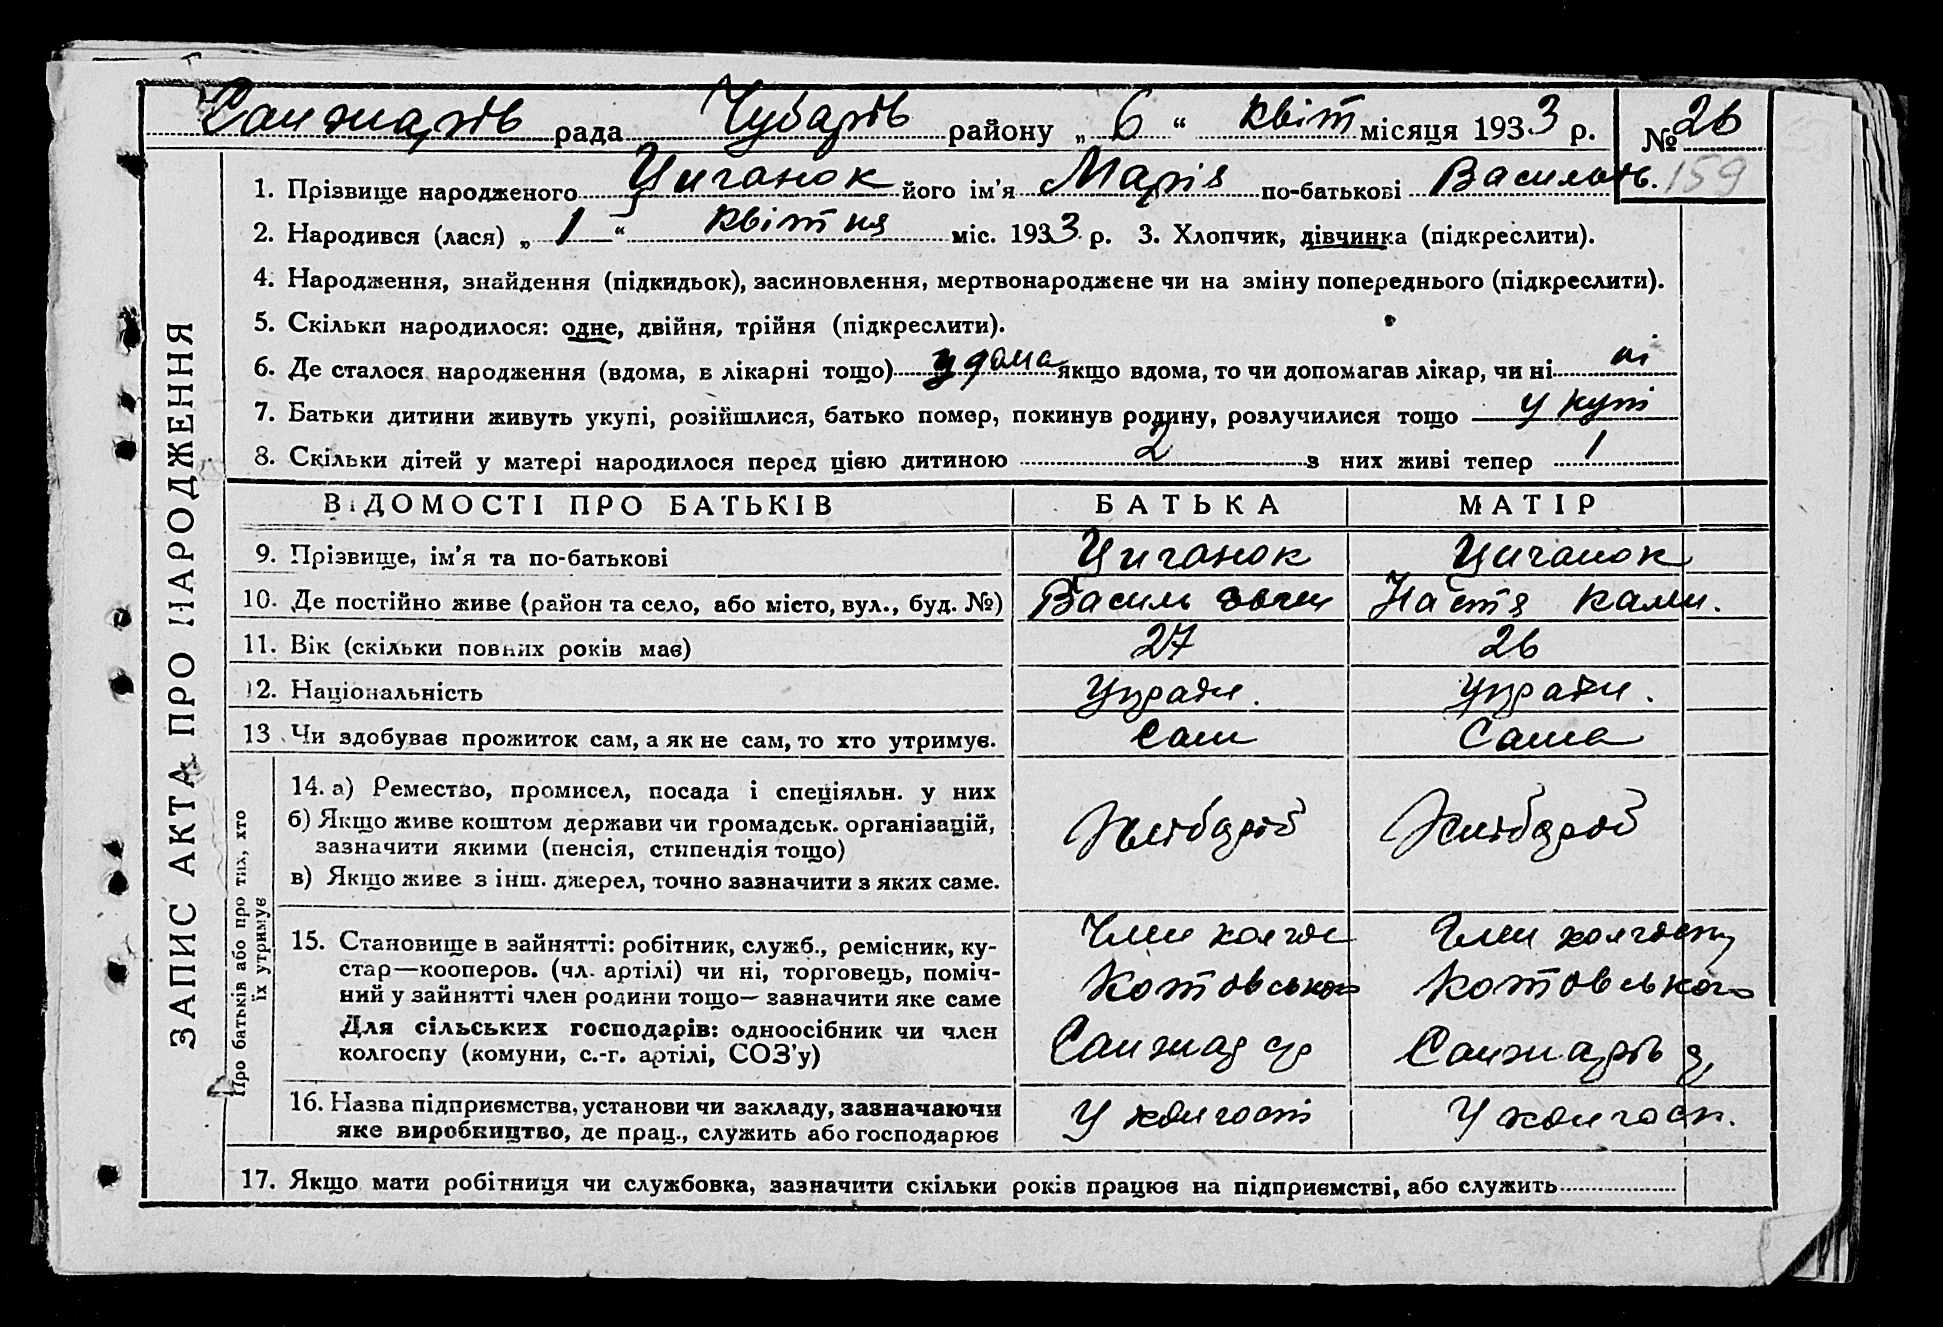 Санжарів рада Чубарів району „ 6 “ квіт місяця 1933 р. № 26
1. Прізвище народженого Циганок його ім’я Марія по-батькові Василівн. 159
2. Народився (лася) „ 1 “ квітня міс. 1933 р. 3. Хлопчик, дівчинка (підкреслити).
4. Народження, знайдення (підкидьок), засиновлення, мертвонароджене чи на зміну попереднього (підкреслити).
5. Скільки народилося: одне, двійня, трійня (підкреслити).
6. Де сталося народження (вдома, в лікарні тощо) удома якщо вдома, то чи допомагав лікар, чи ні ні
7. Батьки дитини живуть укупі, розійшлися, батько помер, покинув родину, розлучилися тощо у купі
8. Скільки дітей у матері народилося перед цією дитиною 2 з них живі тепер 1
ЗАПИС АКТА ПРО НАРОДЖЕННЯ
ВІДОМОСТІ ПРО БАТЬКІВ БАТЬКА МАТІР
9. Прізвище, ім’я та по-батькові Циганок Циганок
10. Де постійно живе (район та село, або місто, вул., буд. №) Василь Настя Кали.
11. Вік (скільки повних років має) 27 26
12. Національність Україн. Україн.
13. Чи здобував прожиток сам, а як не сам, то хто утримує. Сам Сама
Про батьків або про тих, хто
їх утримує
14. а) Ремество, промисел, посада і спеціяльн. у них
б) Якщо живе коштом держави чи громадськ. організацій,
зазначити якими (пенсія, стипендія тощо)
в) Якщо живе з інш. джерел, точно зазначити з яких саме.
Хлібороб Хлібороб
15. Становище в зайнятті: робітник, служб., ремісник, ку-
стар—кооперов. (чл. артілі) чи ні, торговець, поміч-
ний у зайнятті член родини тощо— зазначити яке саме
Для сільських господарів: одноосібник чи член
колгоспу (комуни, с.-г. артілі, СОЗ’у)
Член колгос Член колгоспу
Котовського Котовського
Санжар Санжарів
16. Назва підприємства, установи чи закладу, зазначаючи
яке виробництво, де прац., служить або господарює
У колгоспі У колгосп.
17. Якщо мати робітниця чи службовка, зазначити скільки років працює на підприємстві, або служить